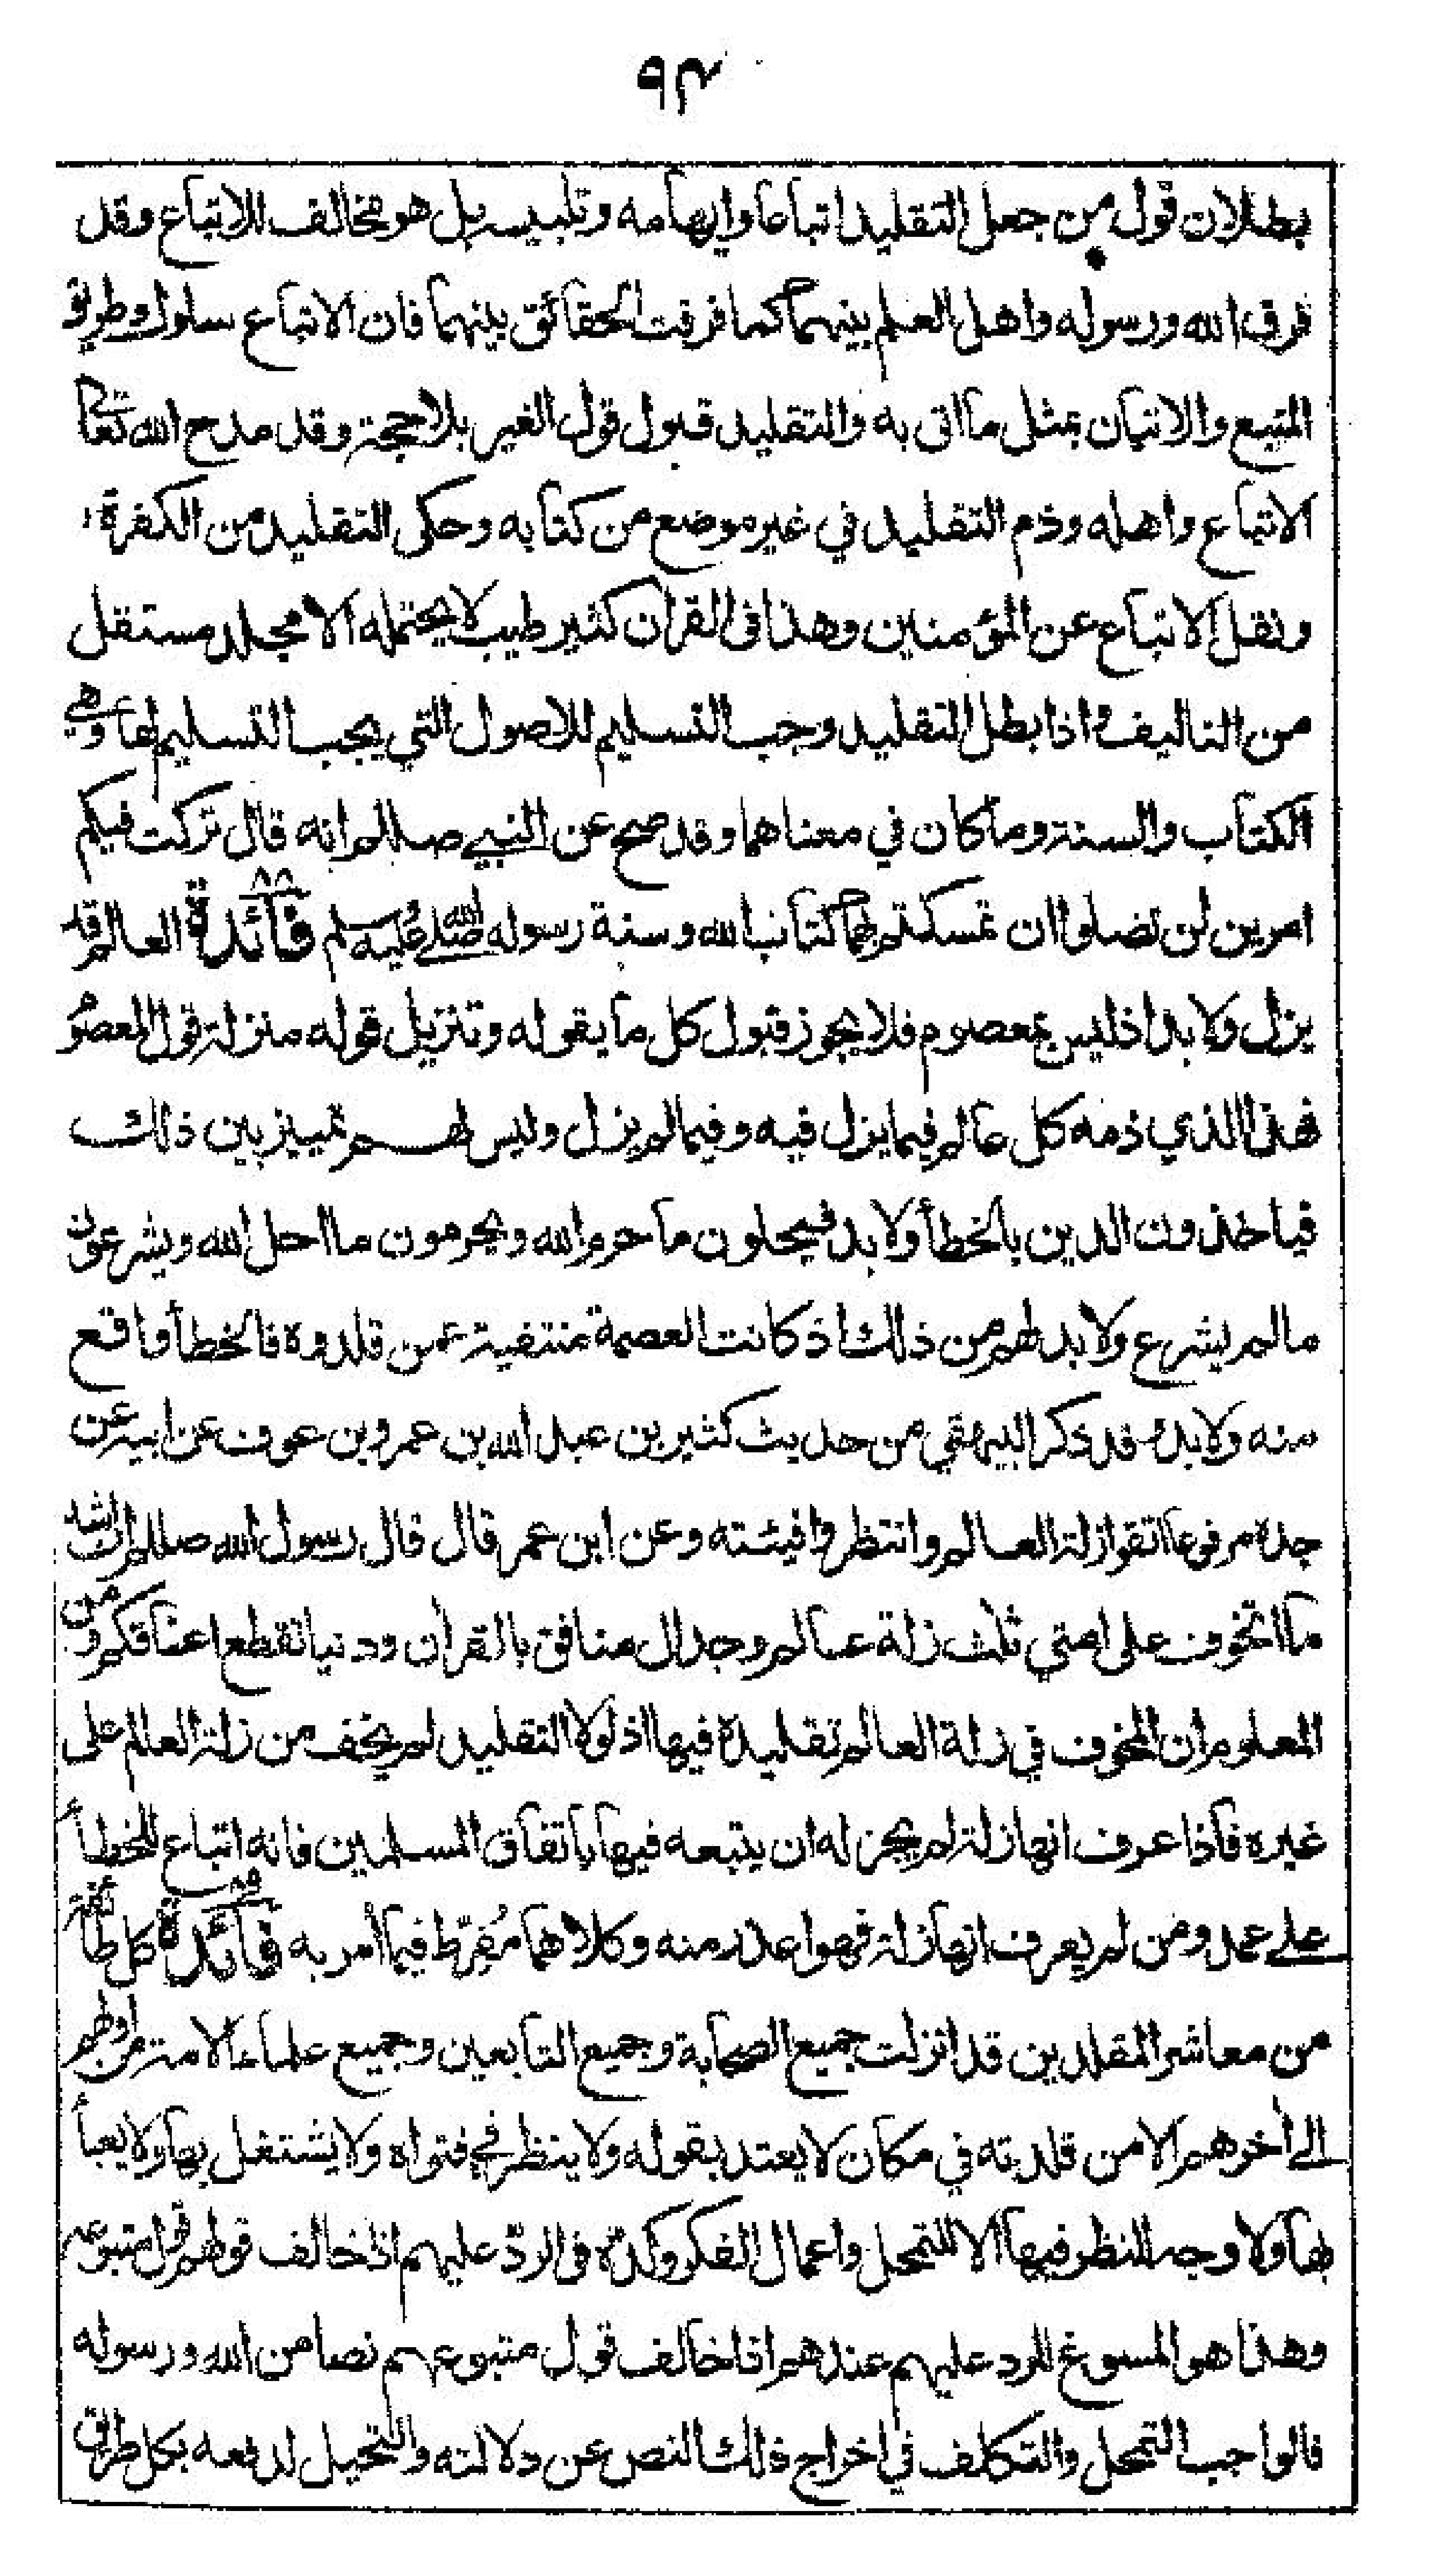 ٩٤
بطلان قول من جعل التقليد اتباعا وايهامه وتلبيسه بل هو مخالف للاتباع وقد
فرق الله ورسوله واهل العلم بينهما كما فرقت الحقائق بينهما فان الاتباع سلوك طريق
المتبع والاتيان بمثل ما اتى به والتقليد قبول قول الغير بلا حجة وقد مدح الله تعالى
الاتباع واهله وذم التقليد في غير موضع من كتابه وحكى التقليد من الكفرة
ونقل الاتباع عن المؤمنين وهذا في القرآن كثير طيب لا يحتمله الا مجلد مستقل
من التاليف واذا بطل التقليد وجب التسليم للاصول التي يجب التسليم لها وهي
الكتاب والسنة وما كان في معناهما وقد صح عن النبي صللم انه قال تركت فيكم
امرين لن تضلوا ان تمسكتم بهما كتاب الله وسنة رسوله صلى الله عليه وسلم فائدة ٨٨ العالم قد
يزل ولا بد اذ ليس بمعصوم فلا يجوز قبول كل ما يقوله وتنزيل قوله منزلة قول المعصوم
فهذا الذي ذمه كل عالم فيما يزل فيه وفيما لم يزل وليس لهم تمييز بين ذلك
فياخذون الدين بالخطأ ولا بد فيحلون ما حرم الله ويحرمون ما احل الله ويشرعون
ما لم يشرع ولا بد لهم من ذلك اذ كانت العصمة منتفية عمن قلدوه فالخطأ واقع
منه ولا بد وقد ذكر البيهقي من حديث كثير بن عبد الله بن عمرو بن عوف عن ابيه عن
جده مرفوعا اتقوا زلة العالم وانتظروا فيئته وعن ابن عمر قال قال رسول الله صللم ان اشد
ما اتخوف على امتي ثلث زلة عالم وجدال منافق بالقرآن ودنيا تقطع اعناقكم ومن
المعلوم ان المخوف في زلة العالم تقليده فيها اذ لولا التقليد لم يخف من زلة العالم على
غيره فاذا عرف انها زلة لم يجز له ان يتبعه فيها باتفاق المسلمين فانه اتباع للخطأ
على عمد ومن لم يعرف انها زلة فهو اعذر منه وكلاهما مُفرِّط فيما أمر به فائدة كل طائفة
من معاشر المقلدين قد انزلت جميع الصحابة وجميع التابعين وجميع علماء الامة من اولهم
الى آخرهم الا من قلدته في مكان لا يعتد بقوله ولا ينظر في فتواه ولا يشتغل بها ولا يعبأ
بها ولا وجه للنظر فيها الا للتمحل واعمال الفكر وكدّه في الردّ عليهم اذا خالف قولهم قول متبوعه
وهذا هو المسوغ للرد عليهم عندهم اذا خالف قول متبوعهم نصا من الله ورسوله
فالواجب التمحل والتكلف في اخراج ذلك النص عن دلالته والتحيل لدفعه بكل طريق